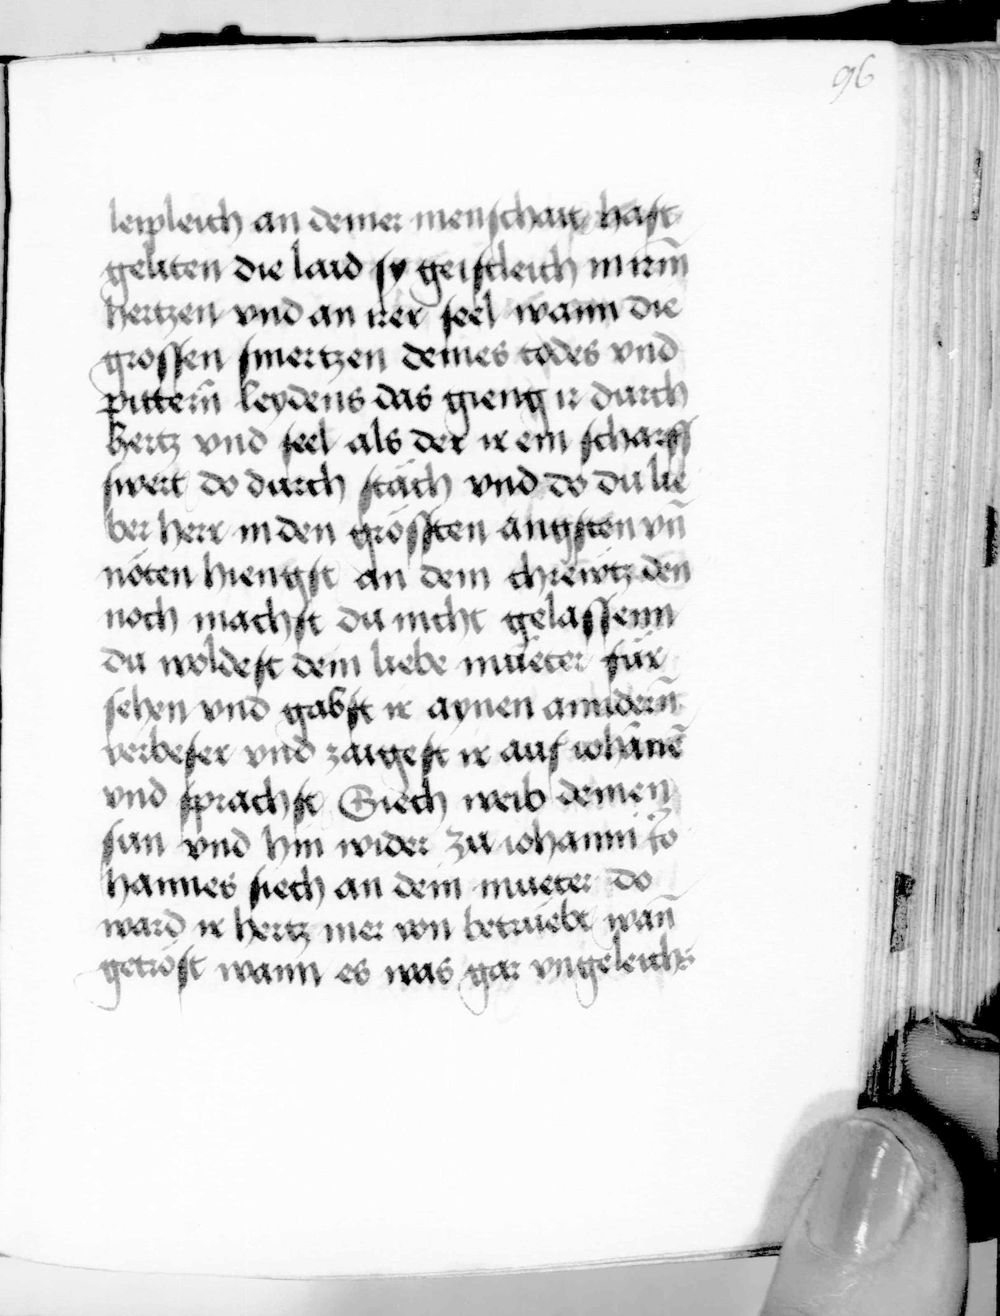 96
leipleich an deiner menschait hast
geliten die laid sy geistleich in irm̄
hertzen vnd an irer seel wann die
grossen smertzen deines todes vnd
pittern̄ leydens das gieng ir durch
hertz vnd seel als der ir ein scharff
swert do durch stäch vnd do du lie
ber herr in den grössten ängsten vn̄
nöten hiengst an dem chrewtz den
noch machst du nicht gelassenn
du woldest dein liebe mueter für
sehen vnd gabst ir aynen anndern̄
verbeser vnd zaigest ir auf iohānē
vnd sprachst Siech weib deinen
sun vnd hin wider zu iohanni Jo
hannes siech an dein mueter do
ward ir hertz mer von betrüebt wan̄
getröst wann es was gar vngeleichs